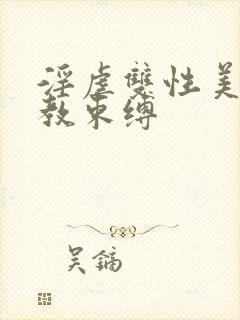 淫虐雙性美
教束缚
吴鏑